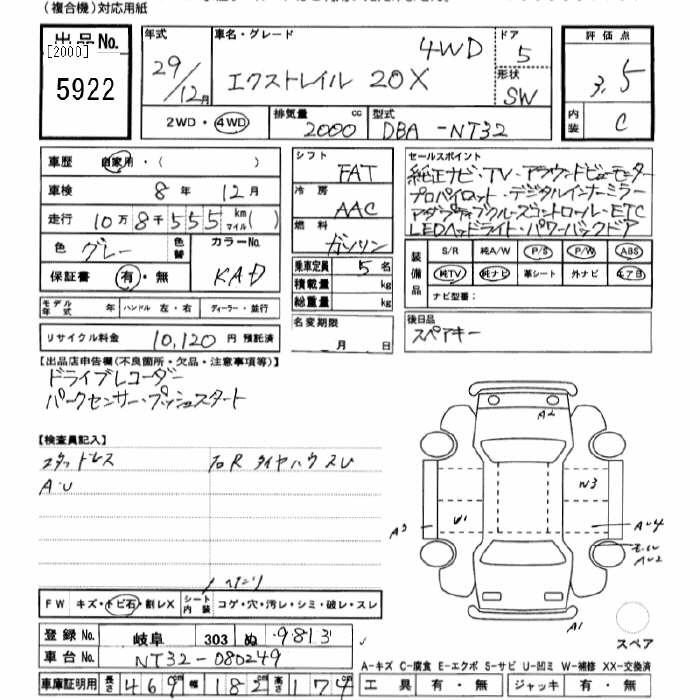 (複合機)対応用紙
出品No.
[2000]
5922
年式 車名・グレード 4WD ドア 5
29/12月 エクストレイル 20X 形状 SW
2WD・4WD 排気量 2000 cc 型式 DBA-NT32
評価点
3.5
内装 C
車歴 自家用・( )
車検 8年 12月
走行 10万8千555 km マイル( )
色 グレー 色替 カラーNo. KAD
保証書 有・無
モデル年式 年 ハンドル 左・右 ディーラー・並行
リサイクル料金 10,120 円 預託済
シフト FAT
冷房 AAC
燃料 ガソリン
乗車定員 5名
積載量 kg
総重量 kg
名変期限
月 日
セールスポイント
純正ナビ・TV・アラウンドビューモニター
プロパイロット・デジタルインナーミラー
アダプティブクルーズコントロール・ETC
LEDヘッドライト・パワーバックドア
装備品 S/R 純A/W P/S P/W ABS
純TV 純ナビ 革シート 外ナビ エアB
ナビ型番:
後日品
スペアキー
【出品店申告欄(不良箇所・欠品・注意事項等)】
ドライブレコーダー
パークセンサー・プッシュスタート
【検査員記入】
スタッドレス 右Rタイヤハウスひ
A・U
FW キズ・トビ石・割レX シート内装 コゲ・穴・汚レ・シミ・破レ・スレ
登録No. 岐阜 303 ぬ 9813
車台No. NT32-080249
車庫証明用 長さ 469 幅 182 高さ 174
A2
W3
A3
U1
AU4
AU2
A1
スペア
A-キズ C-腐食 E-エクボ S-サビ U-凹ミ W-補修 XX-交換済
工具 有・無 ジャッキ 有・無